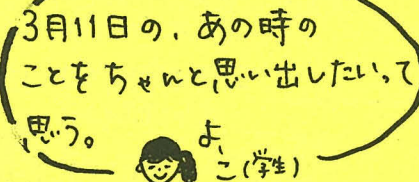 3月11日の、あの時の
ことをちゃんと思い出したいって
思う。
よ、こ(学生)